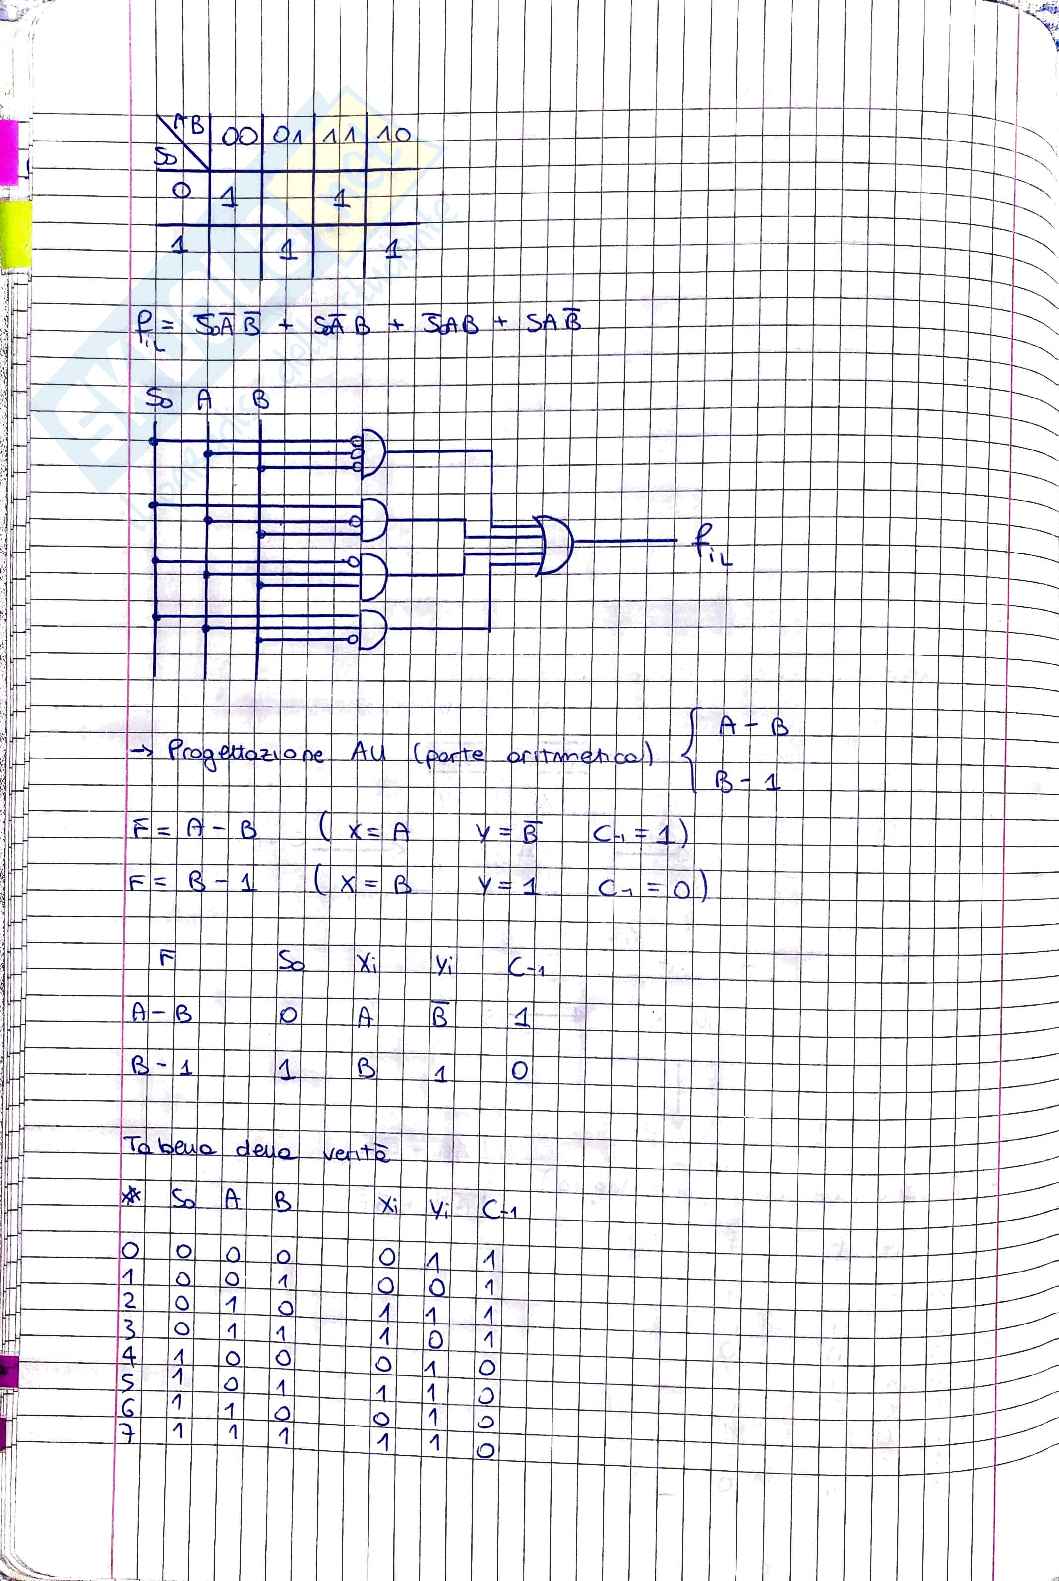 AB 00 01 11 10
S0
0 1 1
1 1 1
f_iL = S̅0A̅B̅ + S0A̅B + S̅0AB + SAB̅
S0 A B
f_iL
→ Progettazione AU (parte aritmetica) { A - B
B - 1
F = A - B ( X = A Y = B̅ C-1 = 1)
F = B - 1 ( X = B Y = 1 C-1 = 0)
F S0 Xi Yi C-1
A - B 0 A B̅ 1
B - 1 1 B 1 0
Tabella della verità
* S0 A B Xi Yi C-1
0 0 0 0 0 1 1
1 0 0 1 0 0 1
2 0 1 0 1 1 1
3 0 1 1 1 0 1
4 1 0 0 0 1 0
5 1 0 1 1 1 0
6 1 1 0 0 1 0
7 1 1 1 1 1 0